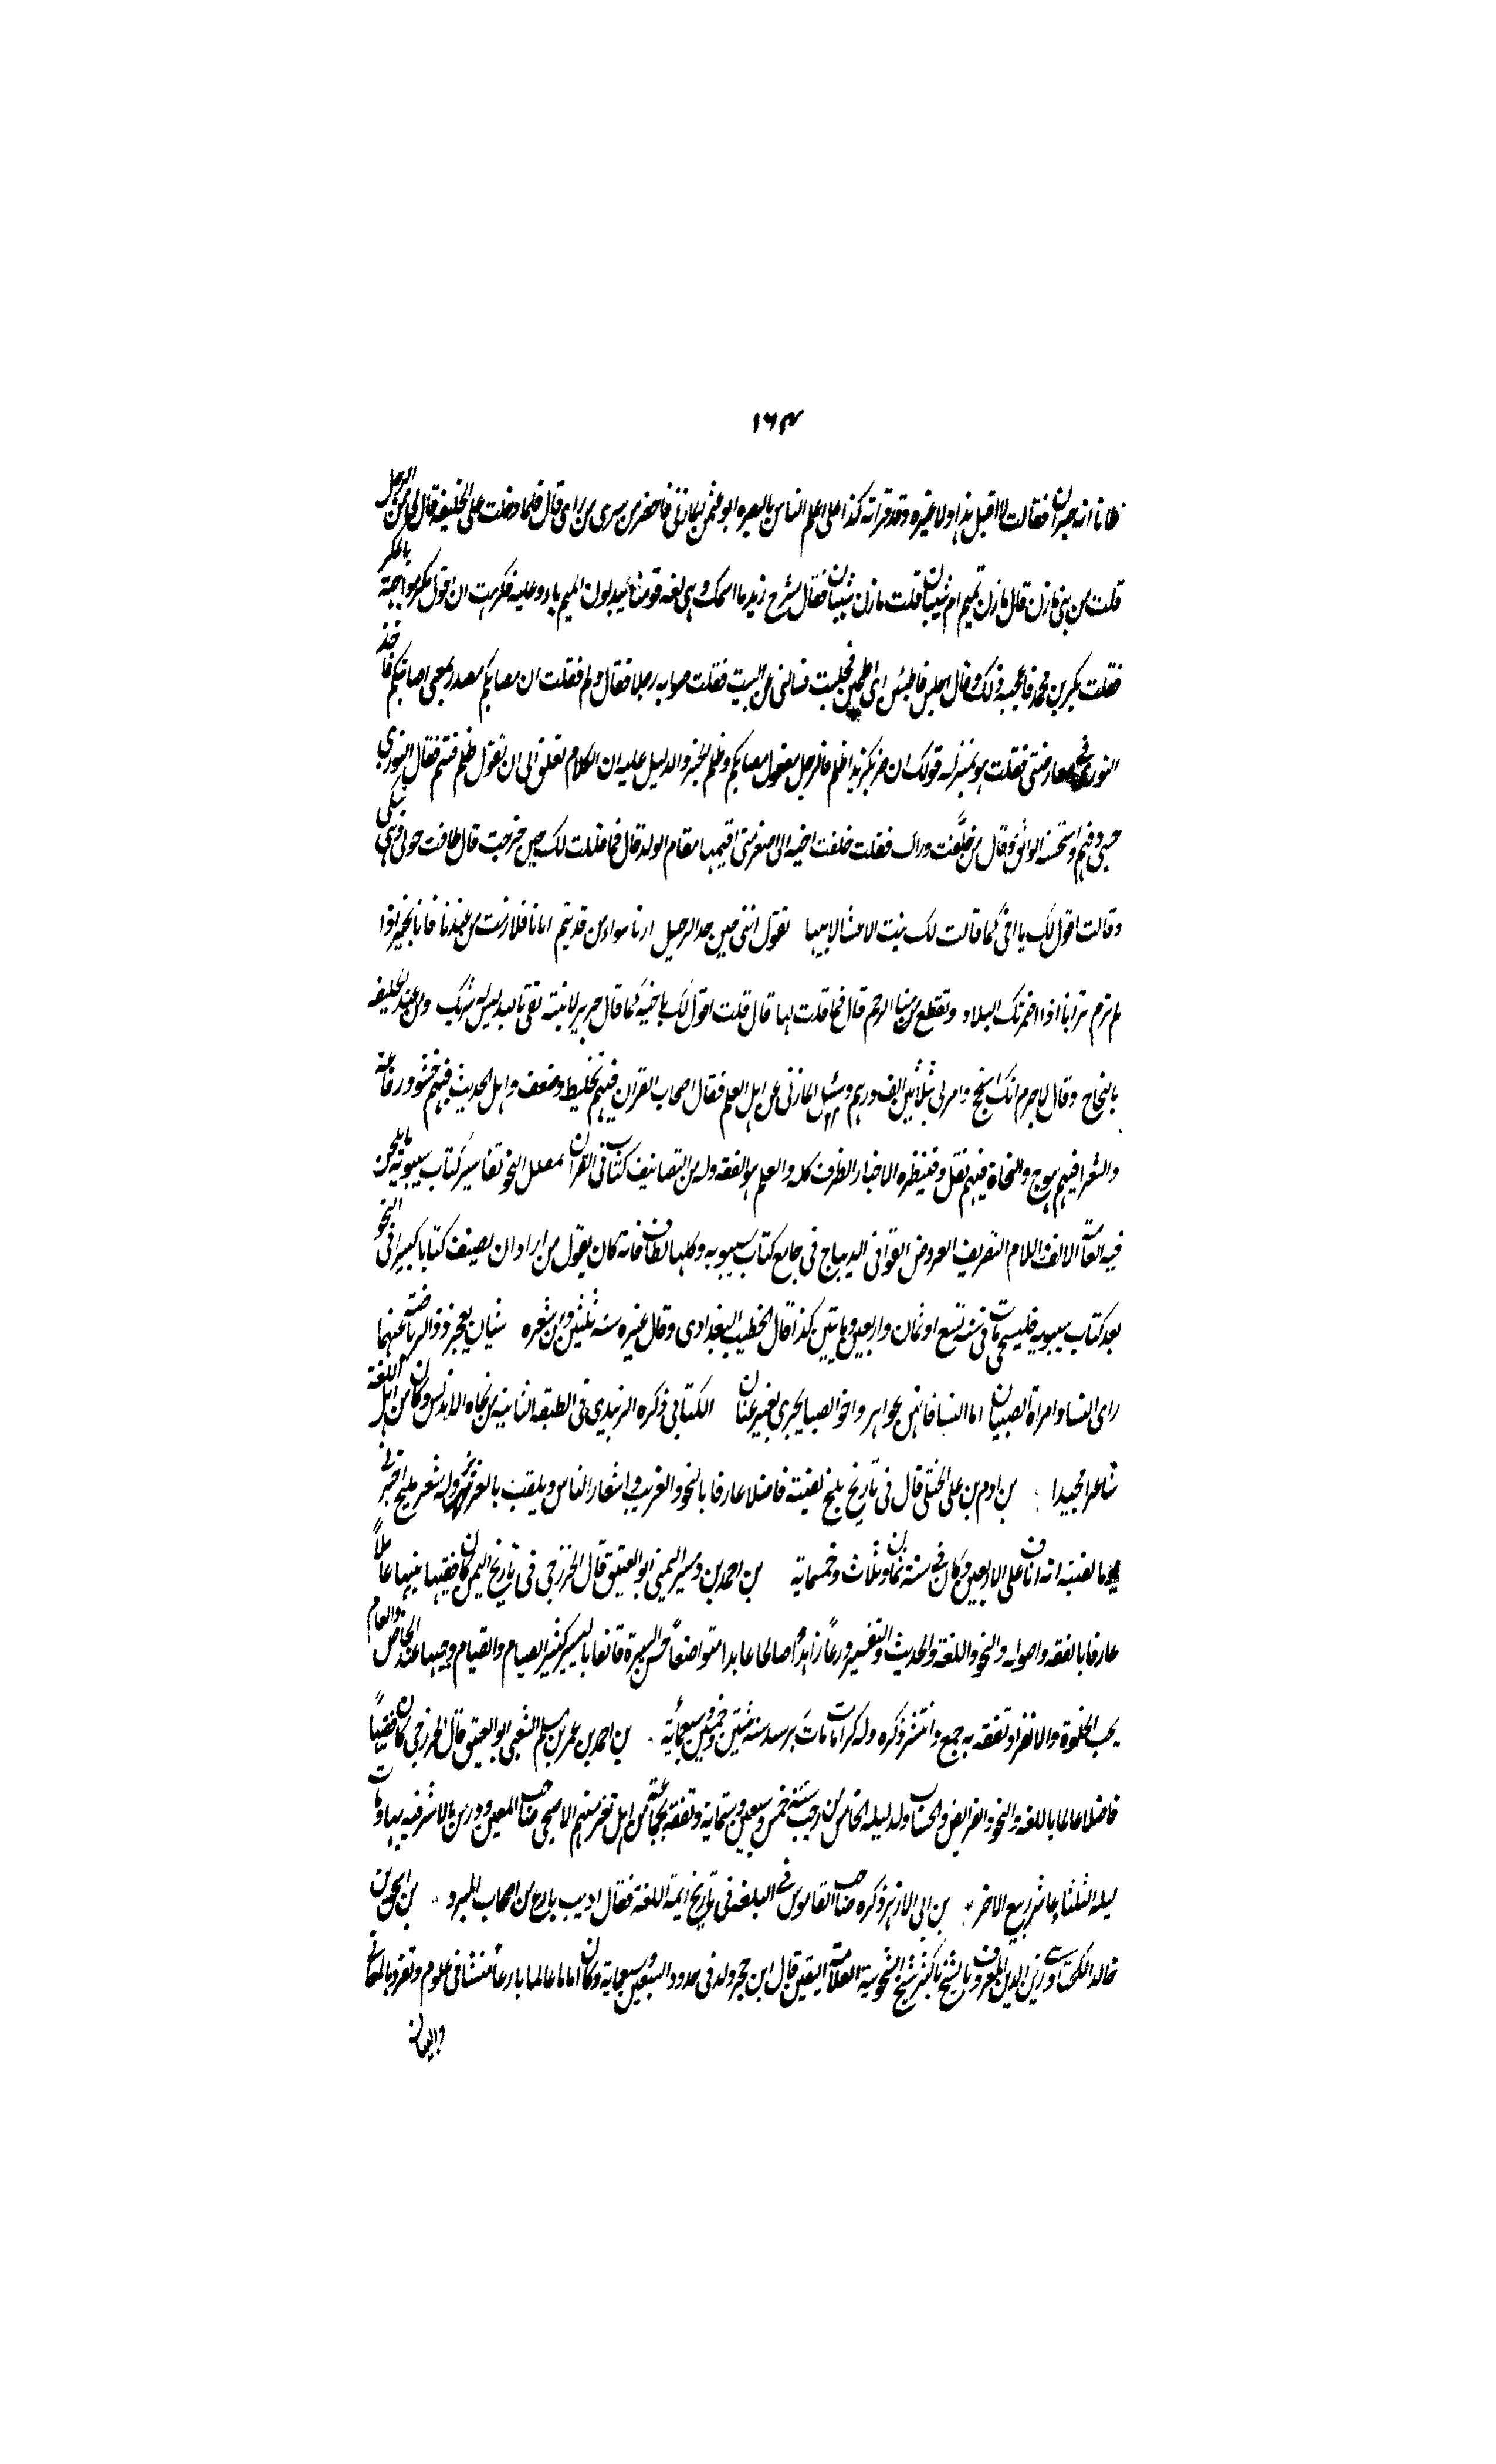 ١٦٣
ظانا انه خبر ان فقالت لا اقبل هذا ولا غيره وقد قراته كذا على اعلم الناس بالبصره ابو عثمن المازنى فاحضر من سرى من راى قال فلما دخلت على الخليفه قال لى ممن الرجل
قلت من بنى مازن قال مازن تميم ام شيبان قلت مازن شيبان فقال باسمك وهى لغه قومنا يبدلون الميم باء وعكسه فكرهت ان اقول مكر مواجهة
فقلت بكر بن محمد فاعجبه ذلك وقال اجلس فاطبئن اى اطمئن فجلست فسالنى عن البيت فقلت صوابه رجلا فقال ولم فقلت ان مصابكم مصدر بمعنى اصابتكم فاخذ
التوزى فى معارضتى فقلت هو بمنزله قولك ان ضربك زيدا ظلم فالرجل مفعول مصابكم وظلم الخبر والدليل عليه ان الكلام معلق الى ان تقول ظلم فيتم فقال التوزى
حسبى وفهم واستحسنه الواثق وقال من خلفت وراك فقلت خلفت اخيه الى اصغر منى اقيمها مقام الولد قال فما قالت لك حين خرجت قال طافت حولى وهى تبكى
وقالت اقول لك يا اخى كما قالت بنت الاعشا لابيها تقول ابنتى حين جد الرحيل ارنا سواء ومن قد يتم ابانا فلا رمت من عندنا فانا بخير اذا
لم ترم ترانا اذا اضمرتك البلاد وتقطع منا الرحم قال فما قلت لها قال قلت اقول لك يا اخيه كما قال جرير لابنته ثقى بالله ليس له شريك ومن عند الخليفه
بالنجاح وقال لا جرم انك ستنجح وامر لى بثلاثين الف درهم وسئل المازنى عن اهل العلم فقال اصحاب القران فيهم تخليط وضعف واهل الحديث فيهم حشو ورقاعة
والشعرا فيهم هوج والنحاة فيهم ثقل وفى نظره الاخبار الظرف كله والعلم هو الفقه وله من التصانيف كتاب فى القران علل النحو تفاسير كتاب سيبويه ما يلحن
فيه العامه الالف واللام التصريف العروض القوافى الديباج فى جامع كتاب سيبويه وكلها لطاف فانه كان يقول من اراد ان يصنف كتابا كبيرا فى النحو
بعد كتاب سيبويه فليستحى مات فى سنه تسع او ثمان واربعين ومايتين كذا قال الخطيب البغدادى وقال غيره سنه ثلثين ومن شعره شيان يعجز ذو الرياضة عنهما
راى النسا وامراة الصبيان اما النسا فانهن عواهر واخو الصبا يجرى بغير عنان الكتانى ذكره الزبيدى فى الطبقه الثانيه من نحاه الاندلس وكان من اهل اللغة
شاعرا مجيدا بن ادم بن على الختلى قال فى تاريخ بلخ لقيته فاضلا عارفا بالنحو والغريب واشعار الناس ويلقب وله شعر مليح اخبرنى
يوما لقيته انه اناف على الاربعين وكان فى سنة ثمان وثلاث وخمسماية بن احمد بن دمسير اليمنى ابو العتيق قال الخزرجى فى تاريخ اليمن كان فقيها نبيها عاملا
عارفا بالفقه واصوله والنحو واللغة والحديث والتفسير ورعا زاهدا صالحا عابدا متواضعا حسن السيرة قانعا باليسير كثير الصيام والقيام وجيها عند الخاص والعام
يحب الخلوة والانفراد تفقه به جمع وانتشر ذكره وله كرامات مات سنه ثنتين وخمسين وسبعمائة بن احمد بن عمر بن مسلم الشعبى ابو العتيق قال الخزرجى كان فقيها
فاضلا عالما باللغه والنحو والفرايض والحساب ولد ليله الخامس من رجب سنة خمس وسبعين وستماية وتفقه بجماعة من اهل تعز منهم الاصبحى صاحب المعين ودرس بالاشرفيه بها ومات
ليله الثلثاء عاشر ربيع الاخر بن ابى الازهر ذكره صاحب القاموس فى البلغه فى تاريخ ايمة اللغة فقال اديب بارع من اصحاب المبرد بن اسحق بن
خالد الكختاوى زين الدين المعروف بالشيخ باكير شيخ الشيخونية العلامة المتقين قال ابن حجر ولد فى حدود السبعين وسبعماية وكان اماما عالما بارعا متفننا فى علوم وتفرد بالمعانى
والبيان